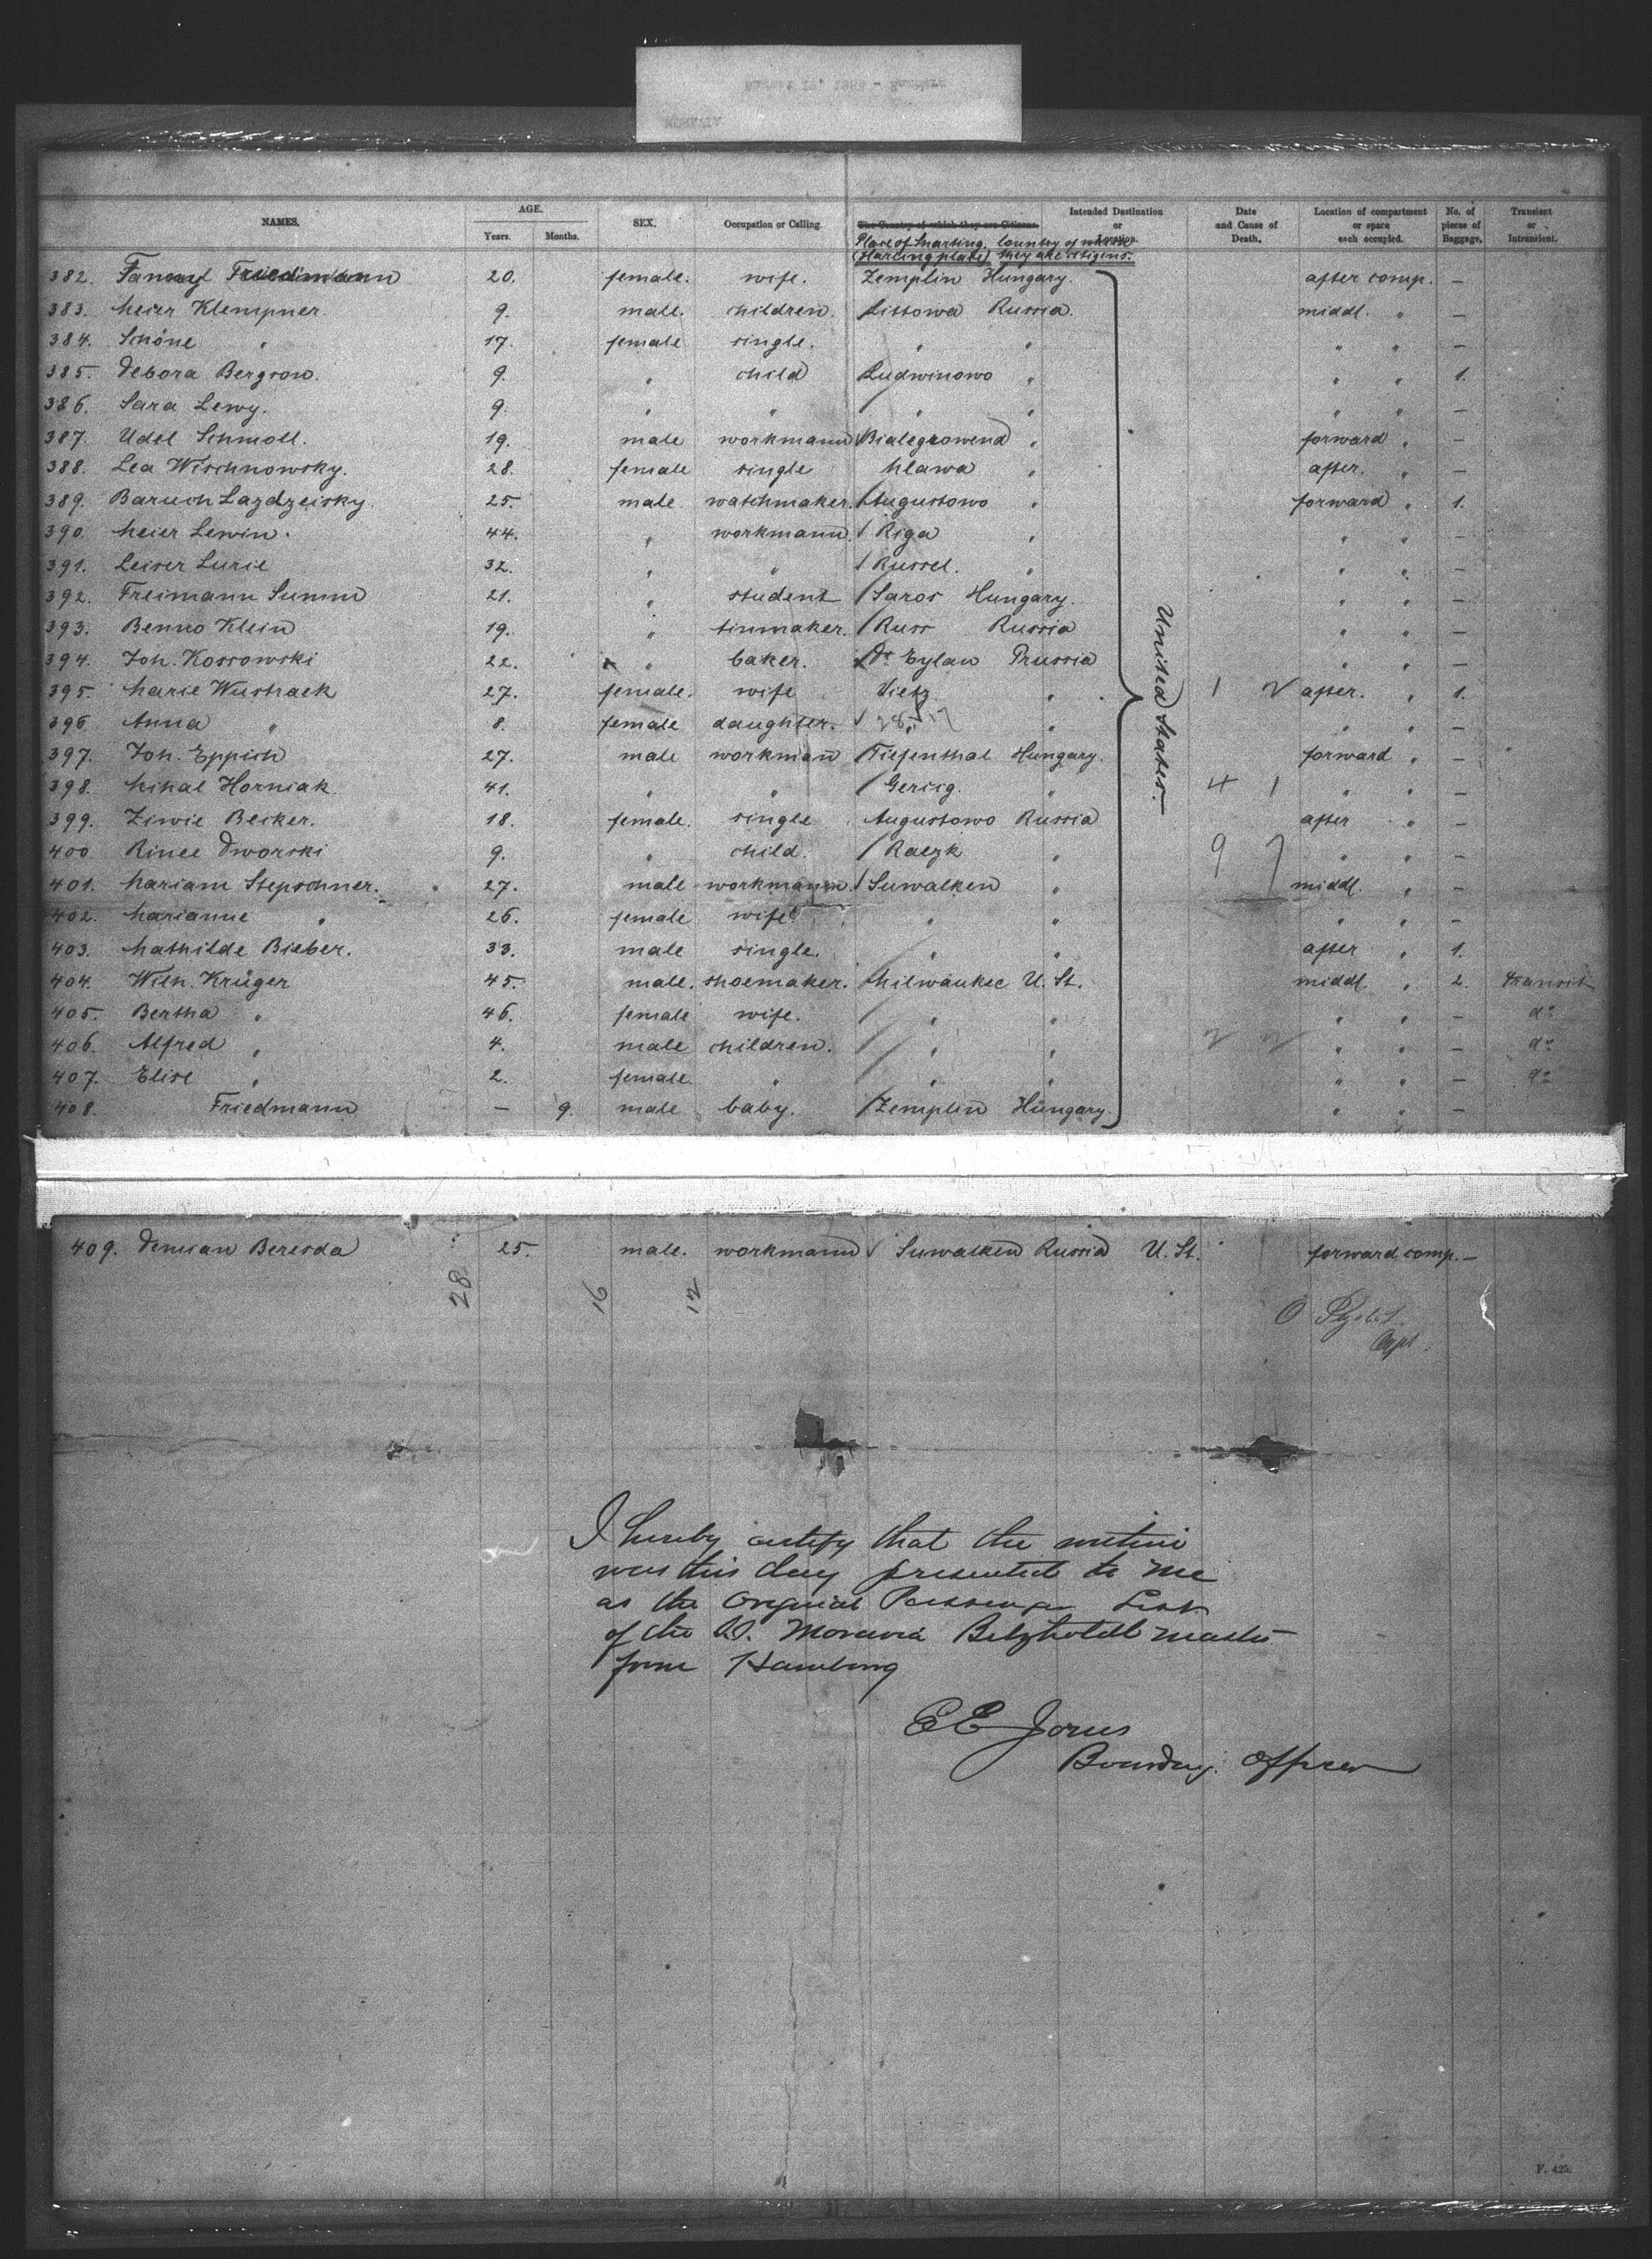 NAMES. AGE. Years. Months. SEX. Occupation or Calling. The Country of which they are Citizens. Intended Destination or Location. Date and Cause of Death. Location of compartment or space each occupied. No. of pieces of Baggage. Transient or Intransient.
Place of Starting. Country of which
(Starting place) they are citizens.
382. Fanny Friedmann 20. female. wife. Zemplin Hungary. after comp. —
383. Meier Klempner. 9. male. children. Lissowa Russia. middl. " —
384. Schöne " 17. female single. " " " " —
385. Debora Bergson. 9. " child Ludwinowo " " " 1.
386. Sara Lewy. 9. " " " " " " —
387. Udel Schmoll. 19. male workmann Bialegrowend " forward " —
388. Lea Wischnowsky. 28. female single Mlawa " after. " —
389. Baruch Lazdzeisky. 25. male watchmaker. Augustowo " forward " 1.
390. Meier Lewin. 44. " workmann. Riga " " " —
391. Leiser Lurie 32. " " Russel. " " " —
392. Freimann 21. " student Saros Hungary. " " —
393. Benno Klein 19. " tinmaker. Russ Russia " " —
394. Joh. Kossowski 22. " baker. Dt Eylau Prussia " " —
395. Marie Wustrack 27. female. wife Vietz " 1 2 after. " 1.
396. Anna " 8. female daughter. " " " " —
397. Joh. Eppich 27. male workman Tiefenthal Hungary. forward " —
398. Mihal Horniak 41. " " Gercig. " 4 1 " " —
399. Ziwie Becker. 18. female. single Augustowo Russia after " —
400. Rince Dworski 9. " child. Raczk " 9 7 " " —
401. Mariam Stepschner. 27. male workmann. Suwalken " middl. " —
402. Marianne " 26. female wife. " " " " —
403. Mathilde Bieber. 33. male single. " " after " 1.
404. Wilh. Krüger 45. male. shoemaker. Milwaukee U. St. middl. " 2. transit
405. Bertha " 46. female wife. " " " " — do
406. Alfred " 4. male children. " " " " — do
407. Elise " 2. female. " " " " " — do
408. Friedmann — 9. male baby. Zemplin Hungary. " " —
United States.
409. Demian Beresda 25. male. workmann Suwalken Russia U. St. forward comp. —
28 16 12
Capt.
I hereby certify that the within
was this day presented to me
as the Original Passenger List
of the SS. Moravia Master
from Hamburg
E E Jones
Boarding Officer
F. 425.